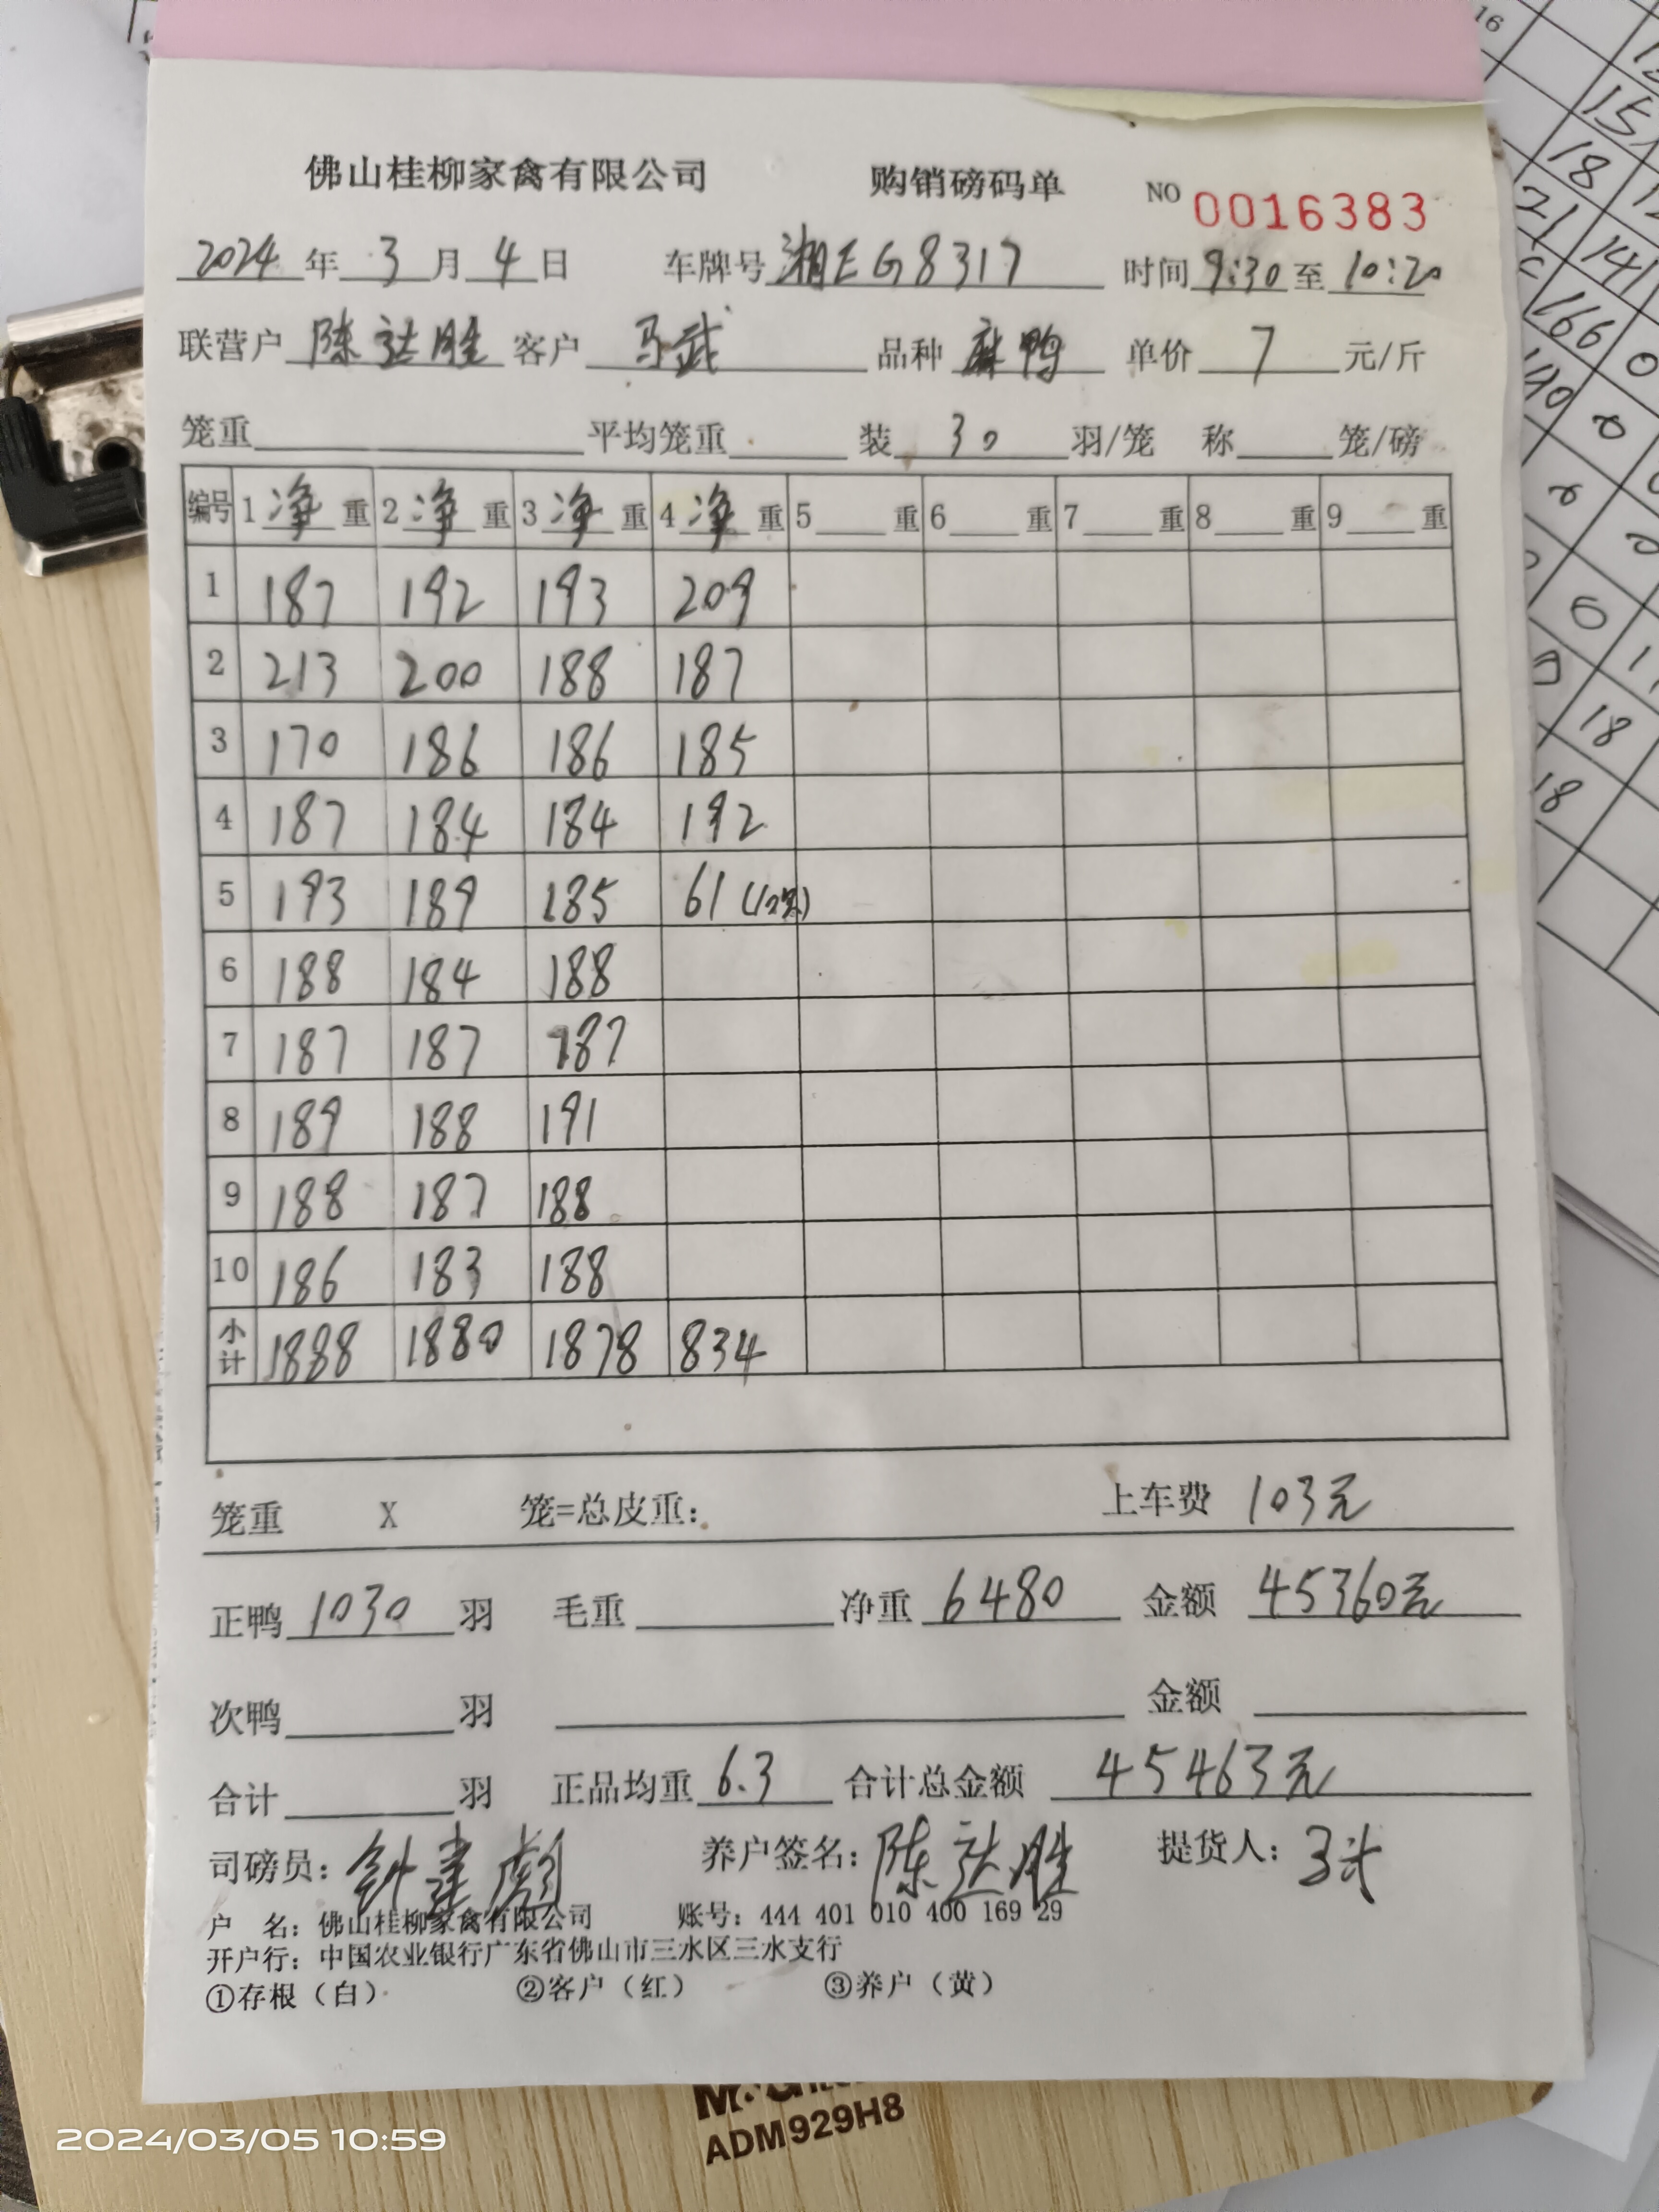 佛山桂柳家禽有限公司 购销磅码单 NO 0016383
2024年3月4日 车牌号湘EG8317 时间9:30至10:20
联营户 陈达胜 客户 马武 品种 麻鸭 单价 7 元/斤
笼重 平均笼重 装 30 羽/笼 称 笼/磅
编号 1净重 2净重 3净重 4净重 5 重 6 重 7 重 8 重 9 重
1 187 192 193 209
2 213 200 188 187
3 170 186 186 185
4 187 184 184 192
5 193 189 185 61 (10只)
6 188 184 188
7 187 187 187
8 189 188 191
9 188 187 188
10 186 183 188
小计 1888 1880 1878 834
笼重 X 笼=总皮重: 上车费 103元
正鸭 1030 羽 毛重 净重 6480 金额 45360元
次鸭 羽 金额
合计 羽 正品均重 6.3 合计总金额 45463元
司磅员: 钟建彪 养户签名: 陈达胜 提货人:
户 名: 佛山桂柳家禽有限公司 账号: 444 401 010 400 169 29
开户行: 中国农业银行广东省佛山市三水区三水支行
①存根（白） ②客户（红） ③养户（黄）
ADM929H8
2024/03/05 10:59